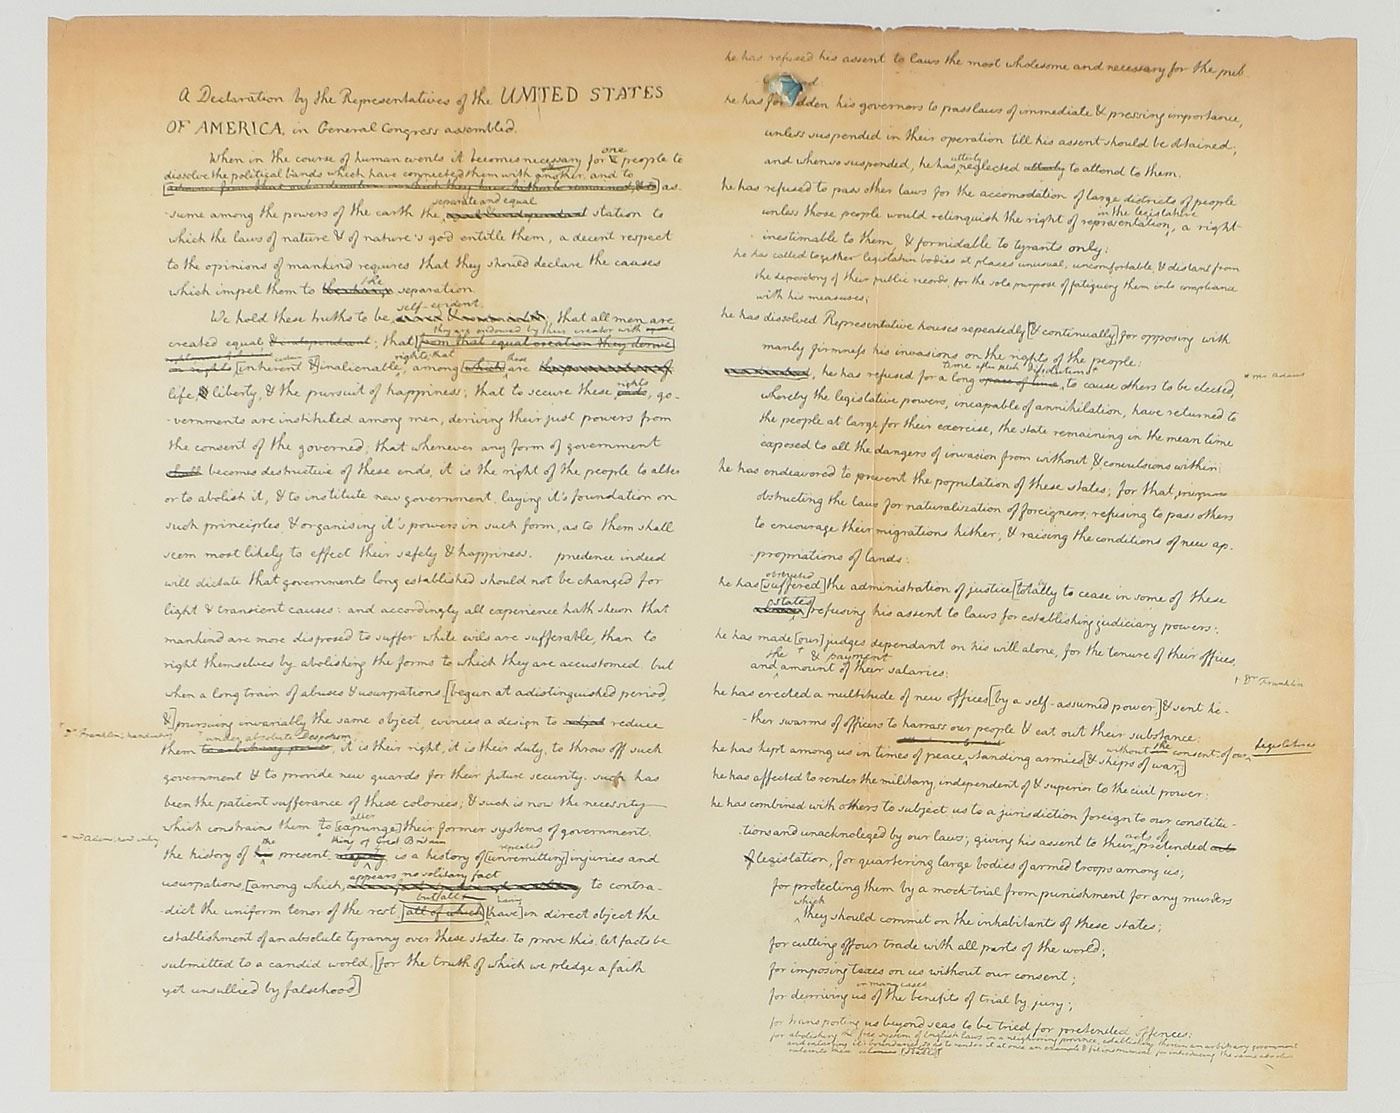 A Declaration by the Representatives of the UNITED STATES
OF AMERICA, in General Congress assembled.
When in the course of human events it becomes necessary for one people to
dissolve the political bands which have connected them with another, and to
as-
separate and equal
-sume among the powers of the earth the station to
which the laws of nature & of nature's god entitle them, a decent respect
to the opinions of mankind requires that they should declare the causes
the
which impel them to separation.
self-evident
We hold these truths to be that all men are
they are endowed by their creator with
created equal & independant; that [from that equal creation they derive
rights; that these
[inherent &] inalienable, among [which] are
rights
life, & liberty, & the pursuit of happiness; that to secure these ends, go-
-vernments are instituted among men, deriving their just powers from
the consent of the governed; that whenever any form of government
shall becomes destructive of these ends, it is the right of the people to alter
or to abolish it, & to institute new government, laying it's foundation on
such principles & organising it's powers in such form, as to them shall
seem most likely to effect their safety & happiness. prudence indeed
will dictate that governments long established should not be changed for
light & transient causes: and accordingly all experience hath shewn that
mankind are more disposed to suffer while evils are sufferable, than to
right themselves by abolishing the forms to which they are accustomed. but
when a long train of abuses & usurpations, [begun at a distinguished period,
&] pursuing invariably the same object, evinces a design to reduce
Dr Franklin's handwriting under absolute Despotism
them to arbitrary power, it is their right, it is their duty, to throw off such
government & to provide new guards for their future security. such has
been the patient sufferance of these colonies; & such is now the necessity
alter
which constrains them to [expunge] their former systems of government.
Mr Adams' handwriting the king of Great Britain repeated
the history of his present is a history of [unremitting] injuries and
appears no solitary fact
usurpations, [among which, to contra-
but all having
-dict the uniform tenor of the rest, [all of which] [have] in direct object the
establishment of an absolute tyranny over these states. to prove this, let facts be
submitted to a candid world, [for the truth of which we pledge a faith
yet unsullied by falsehood]
he has refused his assent to laws the most wholesome and necessary for the pub-
he has forbidden his governors to pass laws of immediate & pressing importance,
unless suspended in their operation till his assent should be obtained;
utterly
and when so suspended, he has neglected utterly to attend to them.
he has refused to pass other laws for the accomodation of large districts of people
in the legislature
unless those people would relinquish the right of representation, a right
inestimable to them, & formidable to tyrants only:
he has called together legislative bodies at places unusual, uncomfortable, & distant from
the depository of their public records, for the sole purpose of fatiguing them into compliance
with his measures;
he has dissolved Representative houses repeatedly [& continually] for opposing with
manly firmness his invasions on the rights of the people:
time after such dissolutions
he has refused for a long space of time, to cause others to be elected, * Mr Adams
whereby the legislative powers, incapable of annihilation, have returned to
the people at large for their exercise, the state remaining in the mean time
exposed to all the dangers of invasion from without & convulsions within:
he has endeavored to prevent the population of these states; for that purpose
obstructing the laws for naturalization of foreigners; refusing to pass others
to encourage their migrations hither; & raising the conditions of new ap-
-propriations of lands:
obstructed
he has [suffered] the administration of justice [totally to cease in some of these
states
] refusing his assent to laws for establishing judiciary powers:
he has made [our] judges dependant on his will alone, for the tenure of their offices,
the & payment
and amount of their salaries: † Dr Franklin
he has erected a multitude of new offices [by a self-assumed power] & sent hi-
-ther swarms of officers to harrass our people & eat out their substance:
without the consent of our legislatures
he has kept among us in times of peace, standing armies [& ships of war]
he has affected to render the military, independent of & superior to the civil power:
he has combined with others to subject us to a jurisdiction foreign to our constitu-
acts of
-tions and unacknoleged by our laws; giving his assent to their pretended acts
of legislation, for quartering large bodies of armed troops among us;
for protecting them by a mock-trial from punishment for any murders
which
they should commit on the inhabitants of these states;
for cutting off our trade with all parts of the world;
for imposing taxes on us without our consent;
in many cases
for depriving us of the benefits of trial by jury;
for transporting us beyond seas to be tried for pretended offences:
for abolishing the free system of English laws in a neighboring province, establishing therein an arbitrary government
and enlarging it's boundaries so as to render it at once an example & fit instrument for introducing the same absolute
rule into these colonies [states]